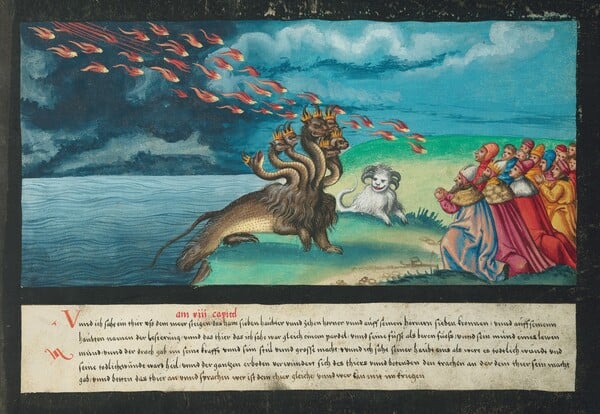 am xiii capitel
Vnnd ich sahe ein thier vß dem meer steigen das ham siben haübter vnnd zehen hörner vnnd auff seinen hörnern siben kronnen vnnd auff seinenn
haubten namen der lesterung vnnd das thier das ich sahe war gleich einem pardel vnnd seine füeß als beren füeß vnnd sein münd eins lewen
münd vnnd der drach gab im seine krafft vnnd sein stül vnd grosse macht vnnd ich sahe seiner haübt ains als wer es tödtlich wundt vnd
seine tödliche wart heil vnnd der gantzen erboden verwundert sich des thiers vnnd bettenden den trachen an der dem thier sein macht
gab vnnd betten das thier an vnnd sprachen wer ist dem thier gleiche vnnd wer kan mit im kriegen